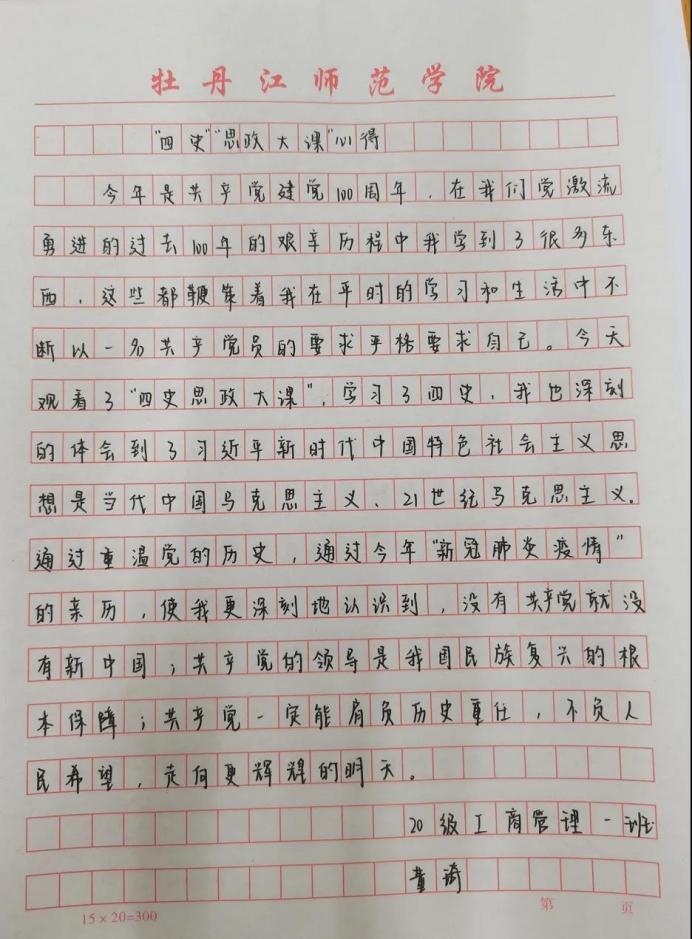 牡丹江师范学院
"四史""思政大课"心得
今年是共产党建党100周年，在我们党激流
勇进的过去100年的艰辛历程中我学到了很多东
西，这些都鞭策着我在平时的学习和生活中不
断以一名共产党员的要求严格要求自己。今天
观看了"四史思政大课"，学习了四史，我也深刻
的体会到了习近平新时代中国特色社会主义思
想是当代中国马克思主义、21世纪马克思主义。
通过重温党的历史，通过今年"新冠肺炎疫情"
的亲历，使我更深刻地认识到，没有共产党就没
有新中国；共产党的领导是我国民族复兴的根
本保障；共产党一定能肩负历史重任，不负人
民希望，走向更辉煌的明天。
20级工商管理一班
董琦
15×20=300 第 页